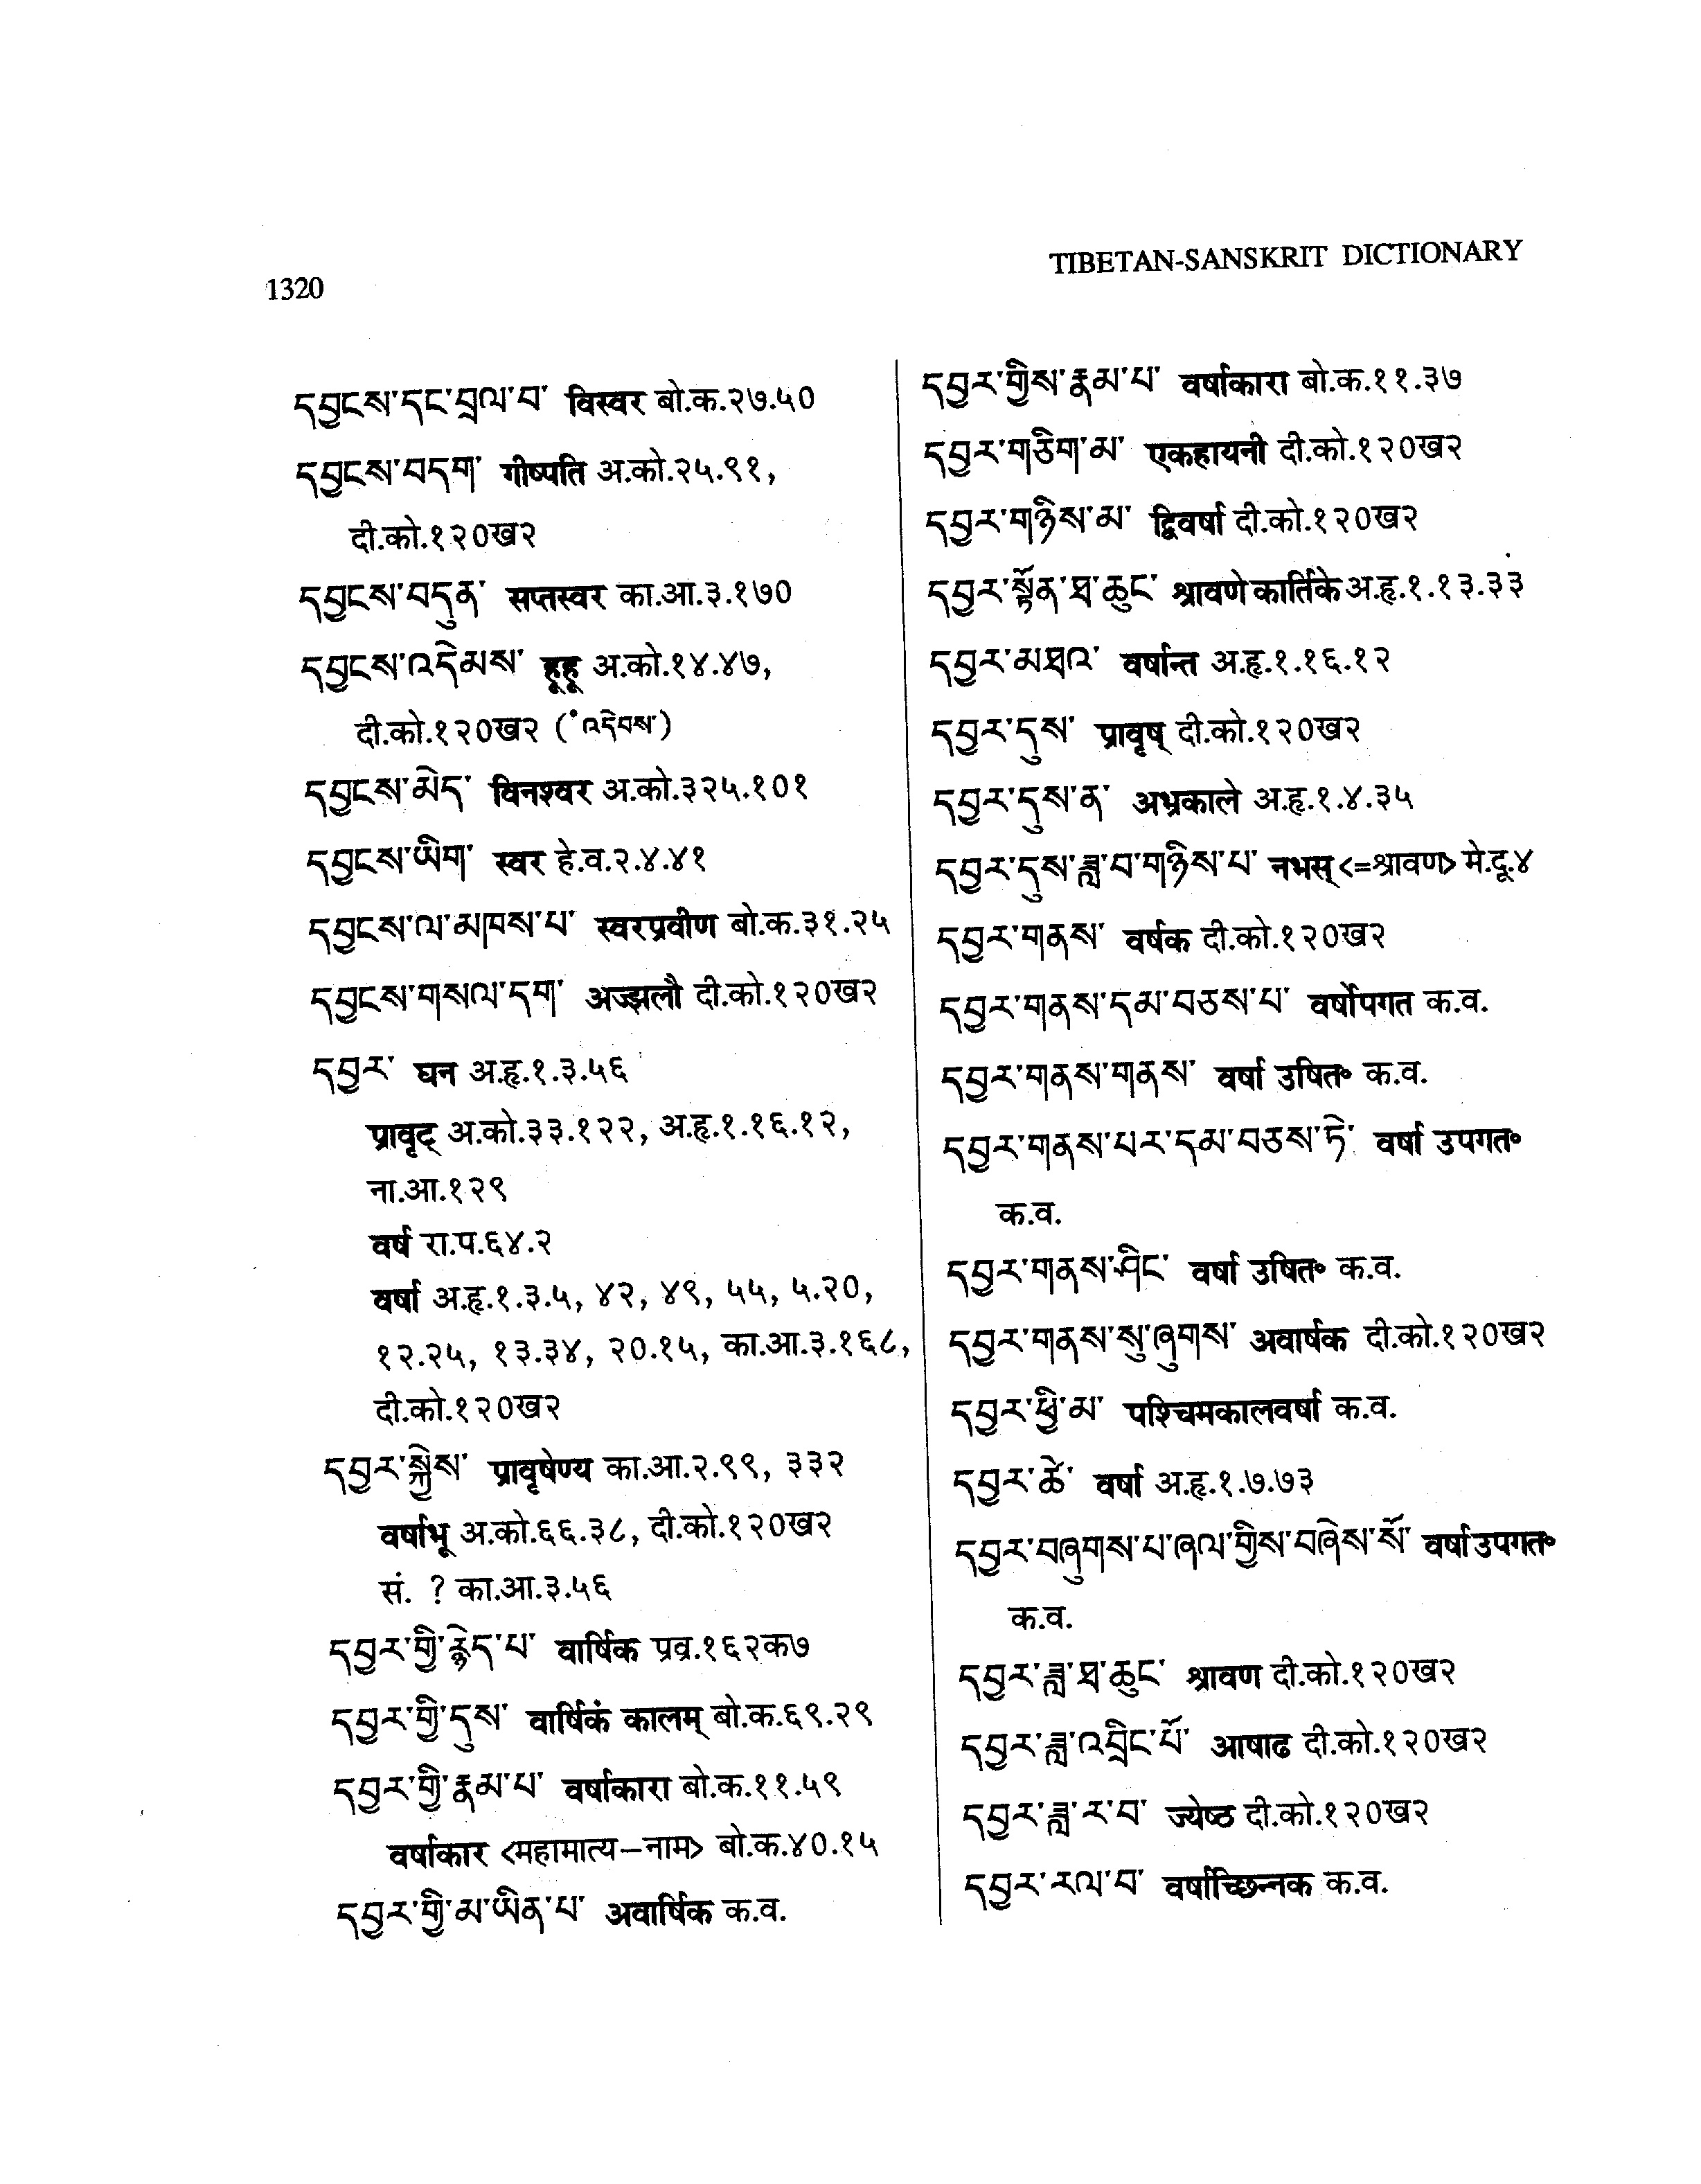 1320
TIBETAN-SANSKRIT DICTIONARY
དབྱངས་དང་བྲལ་བ་ विस्वर बो.क.२७.५०
དབྱངས་བདག་ गीष्पति अ.को.२५.९१,
दी.को.१२०ख२
དབྱངས་བདུན་ सप्तस्वर का.आ.३.१७०
དབྱངས་འདེམས་ हूहू अ.को.१४.४७,
दी.को.१२०ख२ (˚འདེབས་)
དབྱངས་མེད་ विनश्वर अ.को.३२५.१०१
དབྱངས་ཡིག་ स्वर हे.व.२.४.४१
དབྱངས་ལ་མཁས་པ་ स्वरप्रवीण बो.क.३१.२५
དབྱངས་གསལ་དག་ अज्झलौ दी.को.१२०ख२
དབྱར་ घन अ.हृ.१.३.५६
प्रावृट् अ.को.३३.१२२, अ.हृ.१.१६.१२,
ना.आ.१२९
वर्ष रा.प.६४.२
वर्षा अ.हृ.१.३.५, ४२, ४९, ५५, ५.२०,
१२.२५, १३.३४, २०.१५, का.आ.३.१६८,
दी.को.१२०ख२
དབྱར་སྐྱེས་ प्रावृषेण्य का.आ.२.९९, ३३२
वर्षाभू अ.को.६६.३८, दी.को.१२०ख२
सं. ? का.आ.३.५६
དབྱར་གྱི་རྙེད་པ་ वार्षिक प्रव्र.१६२क७
དབྱར་གྱི་དུས་ वार्षिकं कालम् बो.क.६९.२९
དབྱར་གྱི་རྣམ་པ་ वर्षाकारा बो.क.११.५९
वर्षाकार <महामात्य–नाम> बो.क.४०.१५
དབྱར་གྱི་མ་ཡིན་པ་ अवार्षिक क.व.
དབྱར་གྱིས་རྣམ་པ་ वर्षाकारा बो.क.११.३७
དབྱར་གཅིག་མ་ एकहायनी दी.को.१२०ख२
དབྱར་གཉིས་མ་ द्विवर्षा दी.को.१२०ख२
དབྱར་སྟོན་ཐ་ཆུང་ श्रावणे कार्तिके अ.हृ.१.१३.३३
དབྱར་མཐའ་ वर्षान्त अ.हृ.१.१६.१२
དབྱར་དུས་ प्रावृष् दी.को.१२०ख२
དབྱར་དུས་ན་ अभ्रकाले अ.हृ.१.४.३५
དབྱར་དུས་ཟླ་བ་གཉིས་པ་ नभस् <=श्रावण> मे.दू.४
དབྱར་གནས་ वर्षक दी.को.१२०ख२
དབྱར་གནས་དམ་བཅས་པ་ वर्षोपगत क.व.
དབྱར་གནས་གནས་ वर्षा उषित॰ क.व.
དབྱར་གནས་པར་དམ་བཅས་ཏེ་ वर्षा उपगत॰
क.व.
དབྱར་གནས་ཤིང་ वर्षा उषित॰ क.व.
དབྱར་གནས་སུ་ཞུགས་ अवार्षक दी.को.१२०ख२
དབྱར་ཕྱི་མ་ पश्चिमकालवर्षा क.व.
དབྱར་ཚེ་ वर्षा अ.हृ.१.७.७३
དབྱར་བཞུགས་པ་ཞལ་གྱིས་བཞེས་སོ་ वर्षा उपगत॰
क.व.
དབྱར་ཟླ་ཐ་ཆུང་ श्रावण दी.को.१२०ख२
དབྱར་ཟླ་འབྲིང་པོ་ आषाढ दी.को.१२०ख२
དབྱར་ཟླ་ར་བ་ ज्येष्ठ दी.को.१२०ख२
དབྱར་རལ་བ་ वर्षाच्छिन्नक क.व.